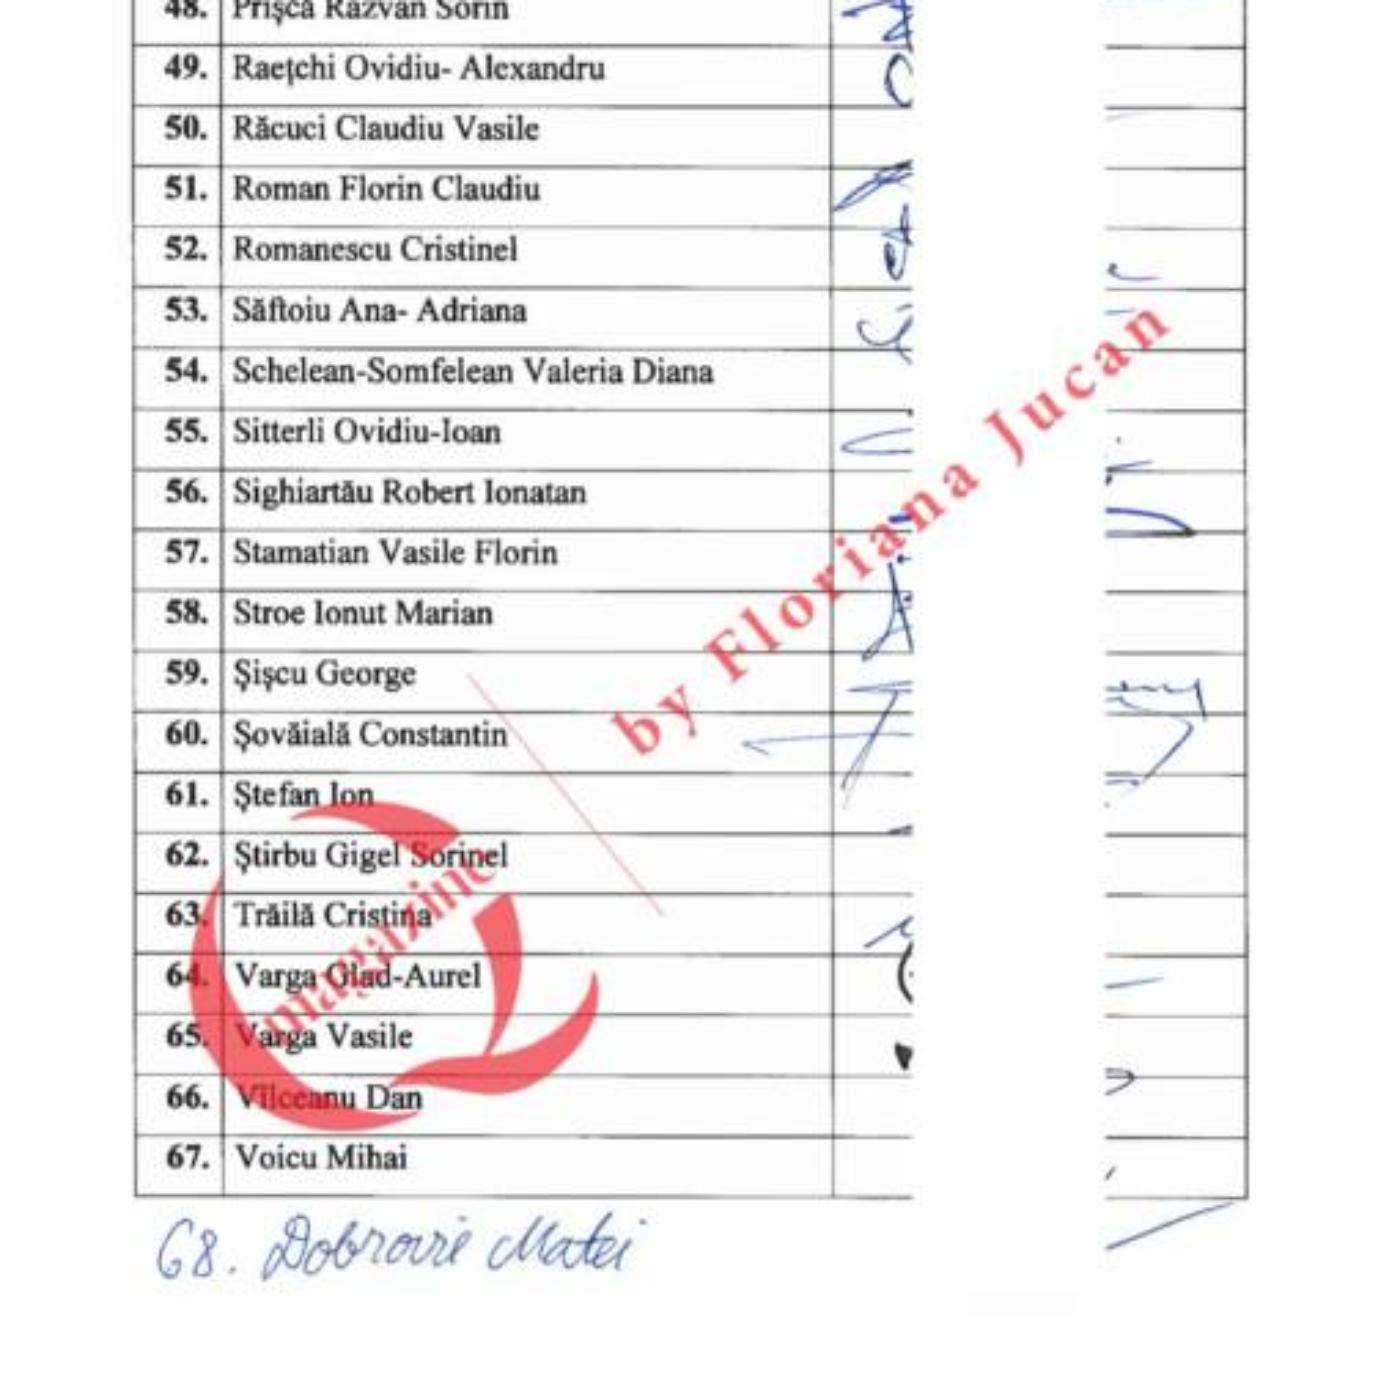 48. Prișca Răzvan Sorin
49. Raețchi Ovidiu- Alexandru
50. Răcuci Claudiu Vasile
51. Roman Florin Claudiu
52. Romanescu Cristinel
53. Săftoiu Ana- Adriana
54. Schelean-Somfelean Valeria Diana
55. Sitterli Ovidiu-Ioan
56. Sighiartău Robert Ionatan
57. Stamatian Vasile Florin
58. Stroe Ionut Marian
59. Șișcu George
60. Șovăială Constantin
61. Ștefan Ion
62. Știrbu Gigel Sorinel
63. Trăilă Cristina
64. Varga Glad-Aurel
65. Varga Vasile
66. Vîlceanu Dan
67. Voicu Mihai
68. Dobrovie Matei
magazine
by Floriana Jucan